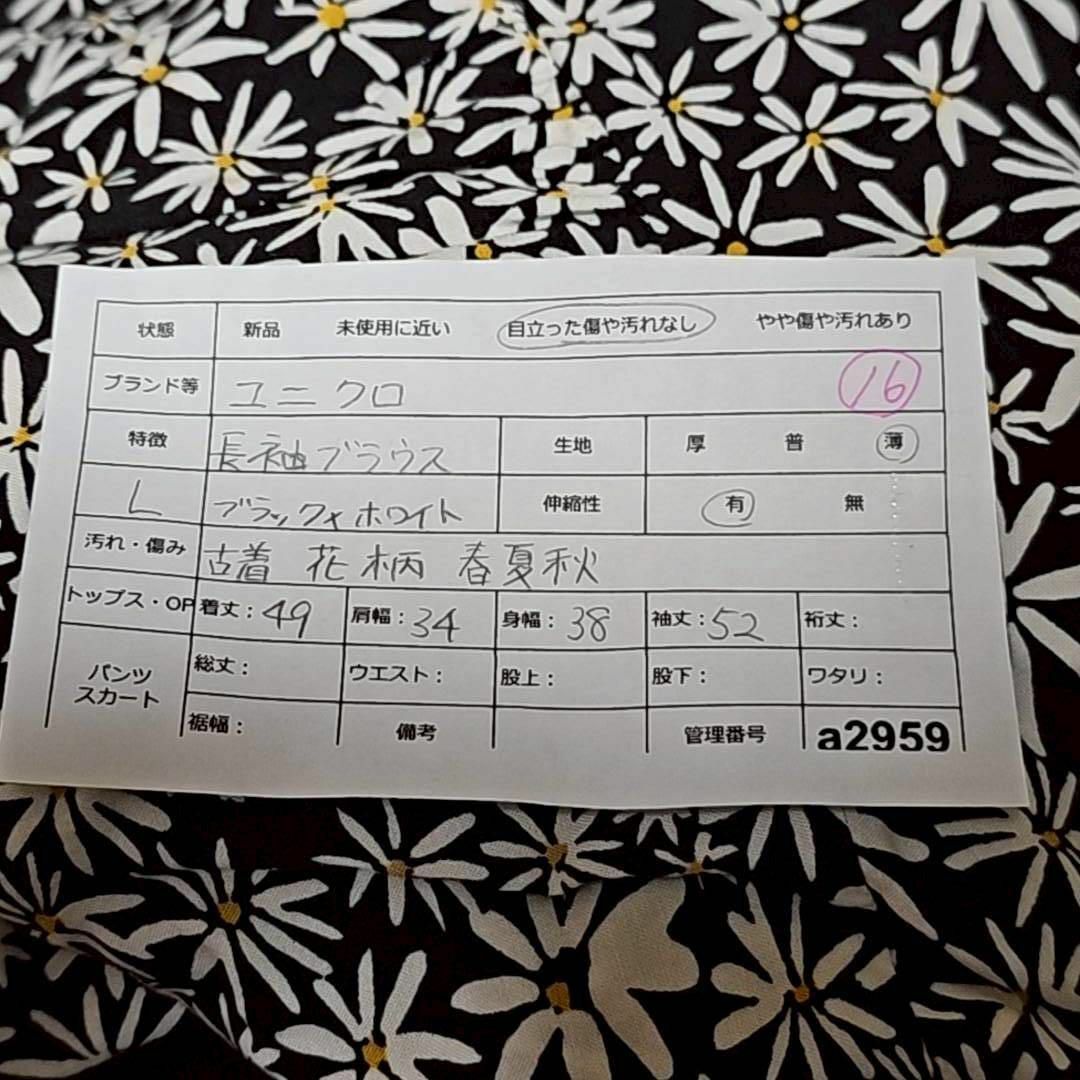 状態 新品 未使用に近い 目立った傷や汚れなし やや傷や汚れあり
ブランド等 ユニクロ 16
特徴 長袖ブラウス 生地 厚 普 薄
L ブラック×ホワイト 伸縮性 有 無
汚れ・傷み 古着 花柄 春夏秋
トップス・OP 着丈：49 肩幅：34 身幅：38 袖丈：52 裄丈：
パンツ スカート 総丈： ウエスト： 股上： 股下： ワタリ：
裾幅： 備考 管理番号 a2959